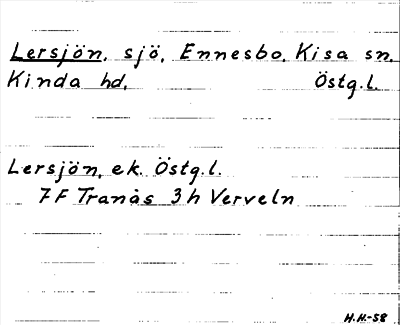 Lersjön, sjö, Ennesbo, Kisa sn,
Kinda hd, Östg.l.
Lersjön, ek. Östg.l.
7F Tranås 3h Verveln
H.H.-58